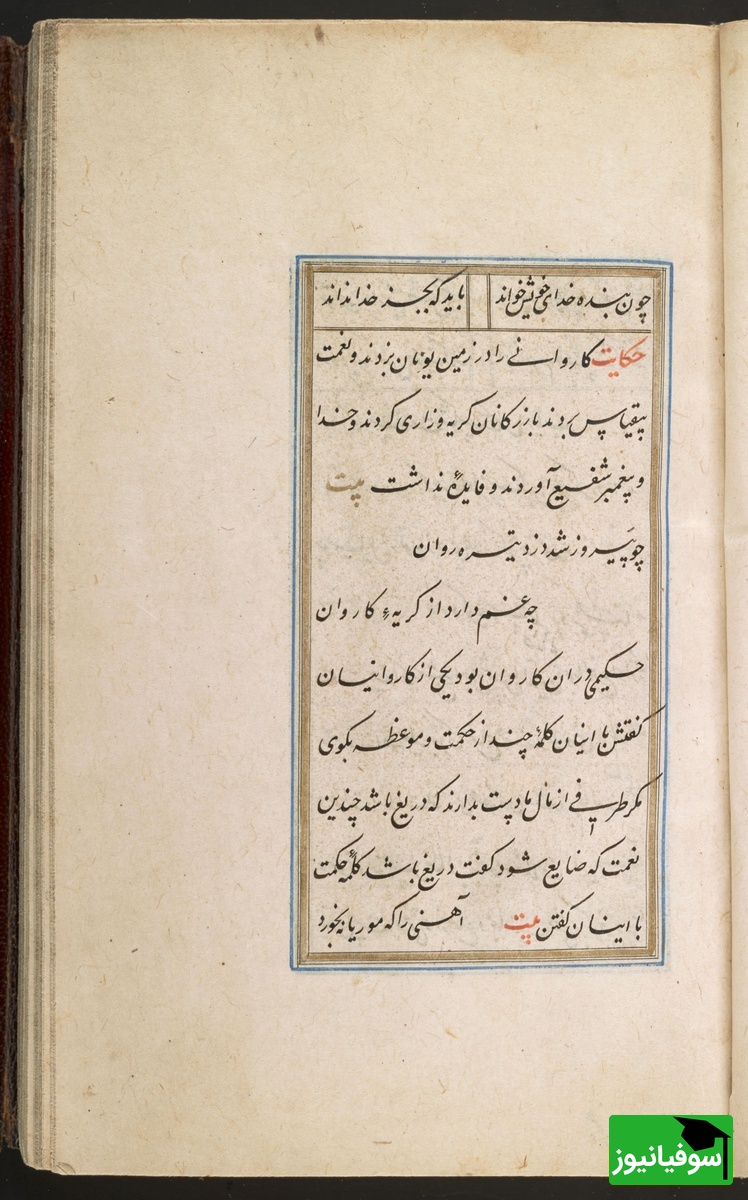 چون بنده خدای خویش خواند باید که بجز خدا نداند
حکایت کاروانی را در زمین یونان بزدند و نعمت
بیقیاس بردند بازرکانان کریه و زاری کردند و خدا
و پیغمبر شفیع آوردند و فایدهٔ نداشت بیت
چو پیروز شد دزد تیره روان
چه غم دارد از کریهء کاروان
حکیمی دران کاروان بود یکی از کاروانیان
کفتش با اینان کلمهٔ چند از حکمت و موعظه بکوی
مکر طرفی از مال ما دست بدارند که دریغ باشد چندین
نعمت که ضایع شود کفت دریغ باشد کلمهٔ حکمت
با اینان کفتن بیت آهنی را که موریانه بخورد
سوفیانیوز